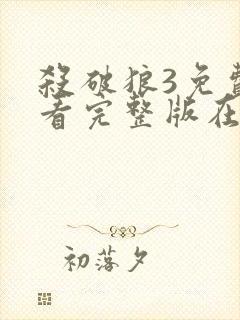 殺破狼3免費
看完整版在
初落夕